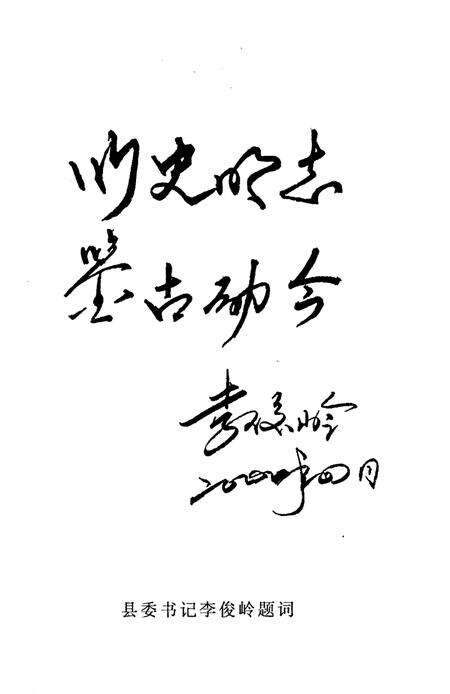 史明志
鉴古励今
李俊岭
二〇〇〇年四月
县委书记李俊岭题词